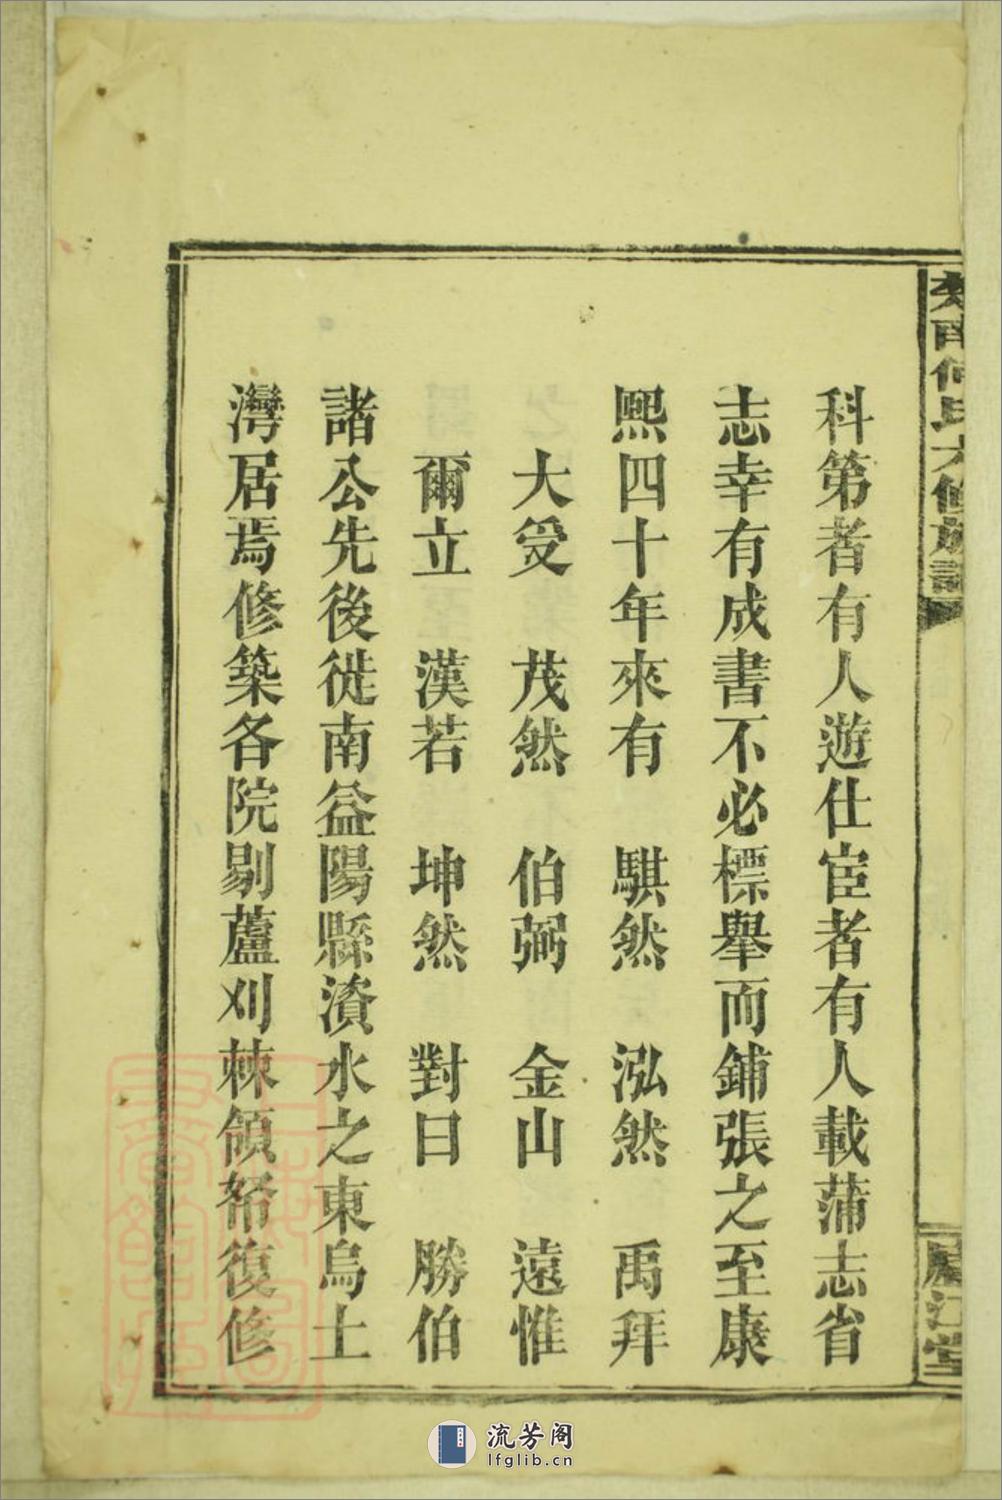 科第者有人遊仕宦者有人載蒲志省
志幸有成書不必標舉而鋪張之至康
熙四十年來有　騏然　泓然　禹拜
大受　茂然　伯弼　金山　遠惟
爾立　漢若　坤然　對曰　勝伯
諸公先後徙南益陽縣濱水之東烏土
灣居焉修築各院剔蘆刈棘領帑復修
何氏六修族譜
江堂
流芳阁
lfglib.cn